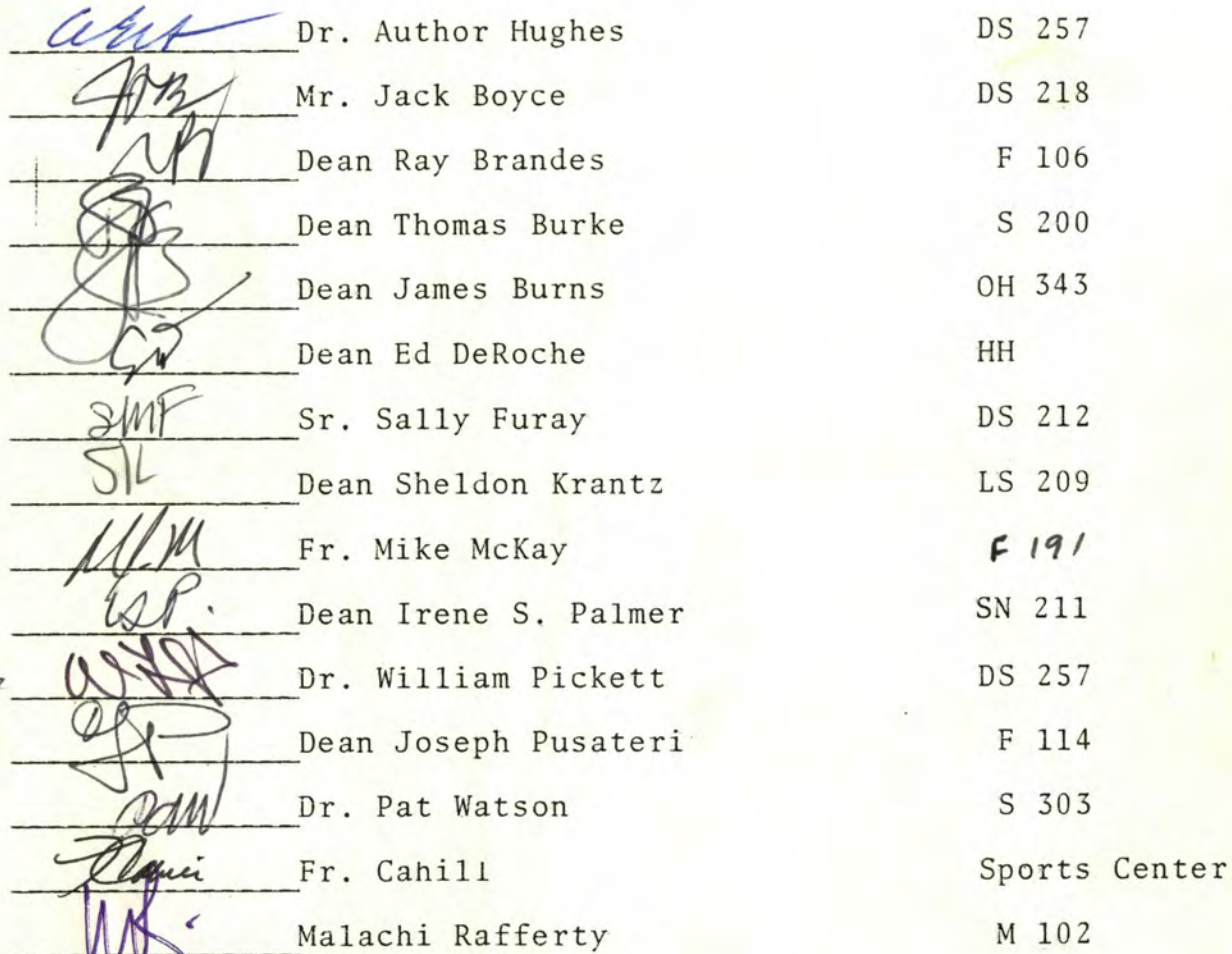 Dr. Author Hughes DS 257
Mr. Jack Boyce DS 218
Dean Ray Brandes F 106
Dean Thomas Burke S 200
Dean James Burns OH 343
Dean Ed DeRoche HH
SMF Sr. Sally Furay DS 212
SK Dean Sheldon Krantz LS 209
Fr. Mike McKay F 191
ISP. Dean Irene S. Palmer SN 211
Dr. William Pickett DS 257
Dean Joseph Pusateri F 114
Dr. Pat Watson S 303
Fr. Cahill Sports Center
Malachi Rafferty M 102